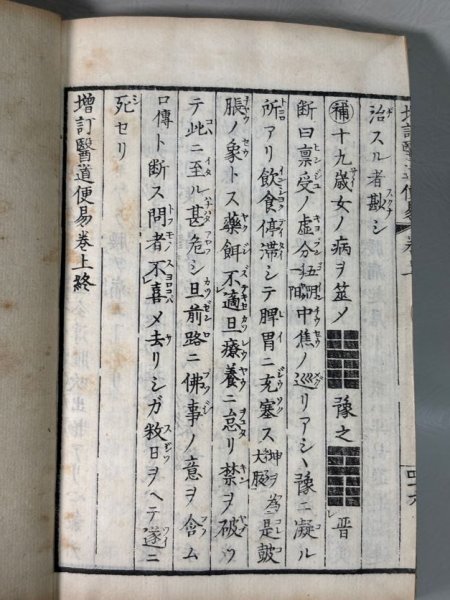 治スル者尠シ
補 十九歳女ノ病ヲ筮ノ 豫之 晋
断曰稟受ノ虚分 中焦ノ巡リアシヽ豫ニ凝ル
所アリ飲食停滞シテ脾胃ニ充塞ス 坤ヲ為大腹 是皷
脹ノ象トス藥餌不適且療養ニ怠リ禁ヲ破ツ
テ此ニ至ル甚危シ且前路ニ佛事ノ意ヲ含ム
口傳ト断ス問者不喜メ去リシガ数日ヲヘテ遂ニ
死セリ
増訂醫道便易巻上終
増訂醫道便易 巻上